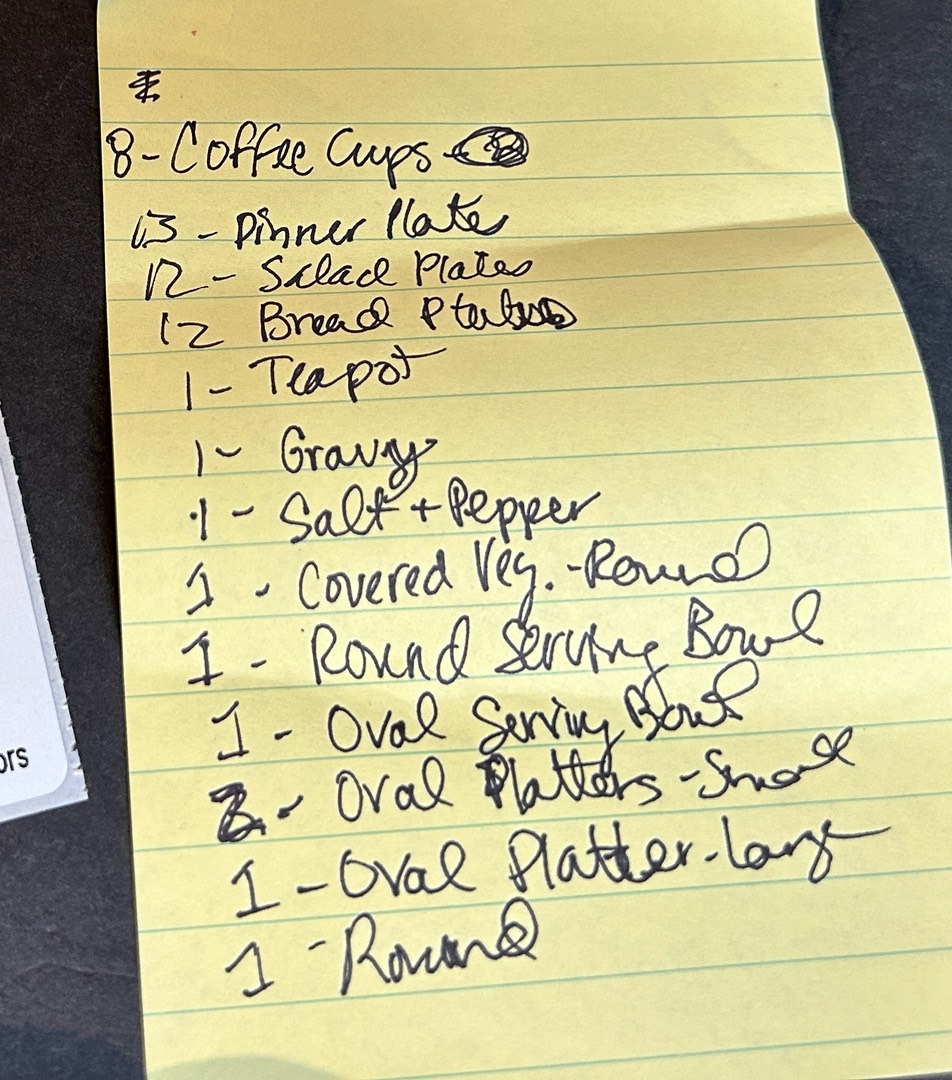 8 - Coffee Cups
13 - Dinner Plate
12 - Salad Plates
12 Bread Plates
1 - Teapot
1 - Gravy
1 - Salt + Pepper
1 - Covered Veg. - Round
1 - Round Serving Bowl
1 - Oval Serving Bowl
2 - Oval Platters - Small
1 - Oval Platter - Large
1 - Round
ors